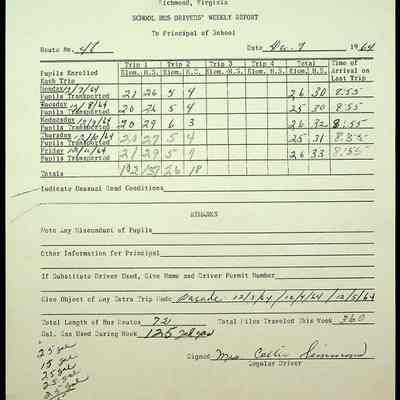 Richmond, Virginia
SCHOOL BUS DRIVERS' WEEKLY REPORT
To Principal of School
Route No. 48 Date Dec. 7 1964
Trip 1 Trip 2 Trip 3 Trip 4 Total Time of
Pupils Enrolled Elem. H.S. Elem. H.S. Elem. H.S. Elem. H.S. Elem. H.S. Arrival on
Each Trip Last Trip
Monday 12/7/64
Pupils Transported 21 26 5 4 26 30 8:55
Tuesday 12/8/64
Pupils Transported 20 26 5 4 25 30 8:55
Wednesday 12/9/64
Pupils Transported 20 29 6 3 26 32 8:55
Thursday 12/10/64
Pupils Transported 20 27 5 4 25 31 8:55
Friday 12/11/64
Pupils Transported 21 29 5 26 33 8:55
Totals 102 137 26 18
Indicate Unusual Road Conditions
REMARKS
Note Any Misconduct of Pupils
Other Information for Principal
If Substitute Driver Used, Give Name and Driver Permit Number
Give Object of Any Extra Trip Made Parade 12/3/64 12/4/64 12/5/64
Total Length of Bus Routes 72 Total Miles Traveled This Week 360
Gal. Gas Used During Week 125 gal gas
25 gal
15 gal
25 gal
25 gal
Signed Mrs
Regular Driver